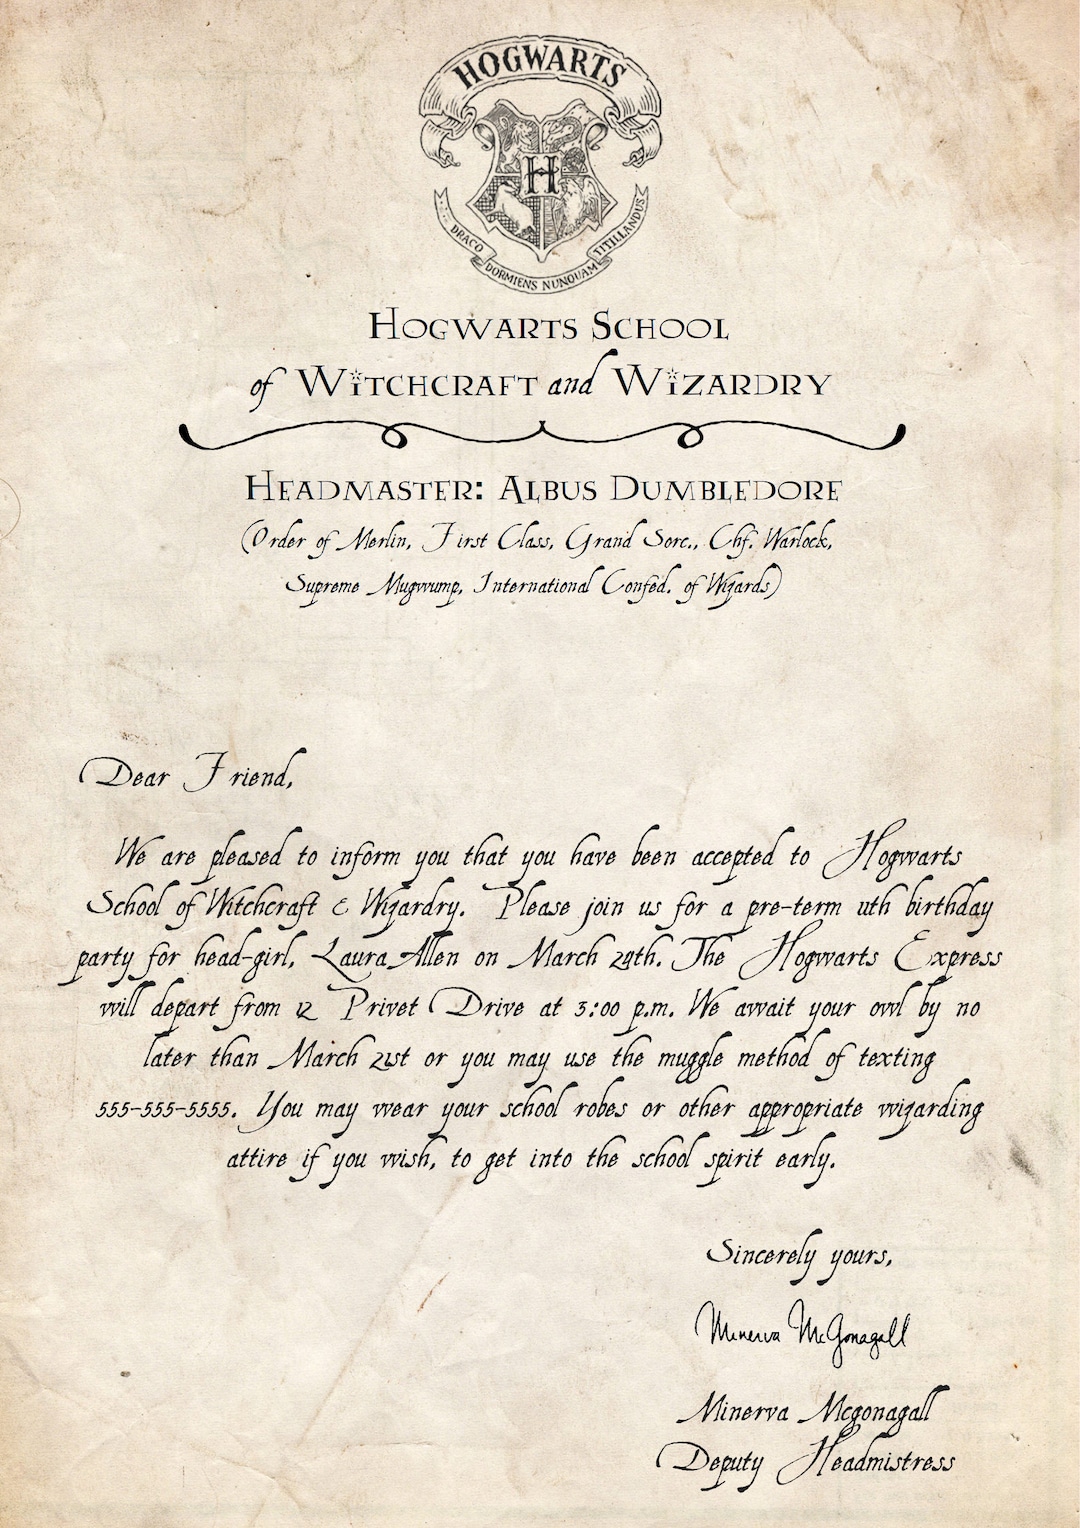 HOGWARTS
H
DRACO DORMIENS NUNQUAM TITILLANDUS
HOGWARTS SCHOOL
of WITCHCRAFT and WIZARDRY
HEADMASTER: ALBUS DUMBLEDORE
(Order of Merlin, First Class, Grand Sorc., Chf. Warlock,
Supreme Mugwump, International Confed. of Wizards)
Dear Friend,
We are pleased to inform you that you have been accepted to Hogwarts
School of Witchcraft & Wizardry. Please join us for a pre-term 11th birthday
party for head-girl, Laura Allen on March 29th. The Hogwarts Express
will depart from 12 Privet Drive at 3:00 p.m. We await your owl by no
later than March 21st or you may use the muggle method of texting
555-555-5555. You may wear your school robes or other appropriate wizarding
attire if you wish, to get into the school spirit early.
Sincerely yours,
Minerva McGonagall
Minerva Mcgonagall
Deputy Headmistress